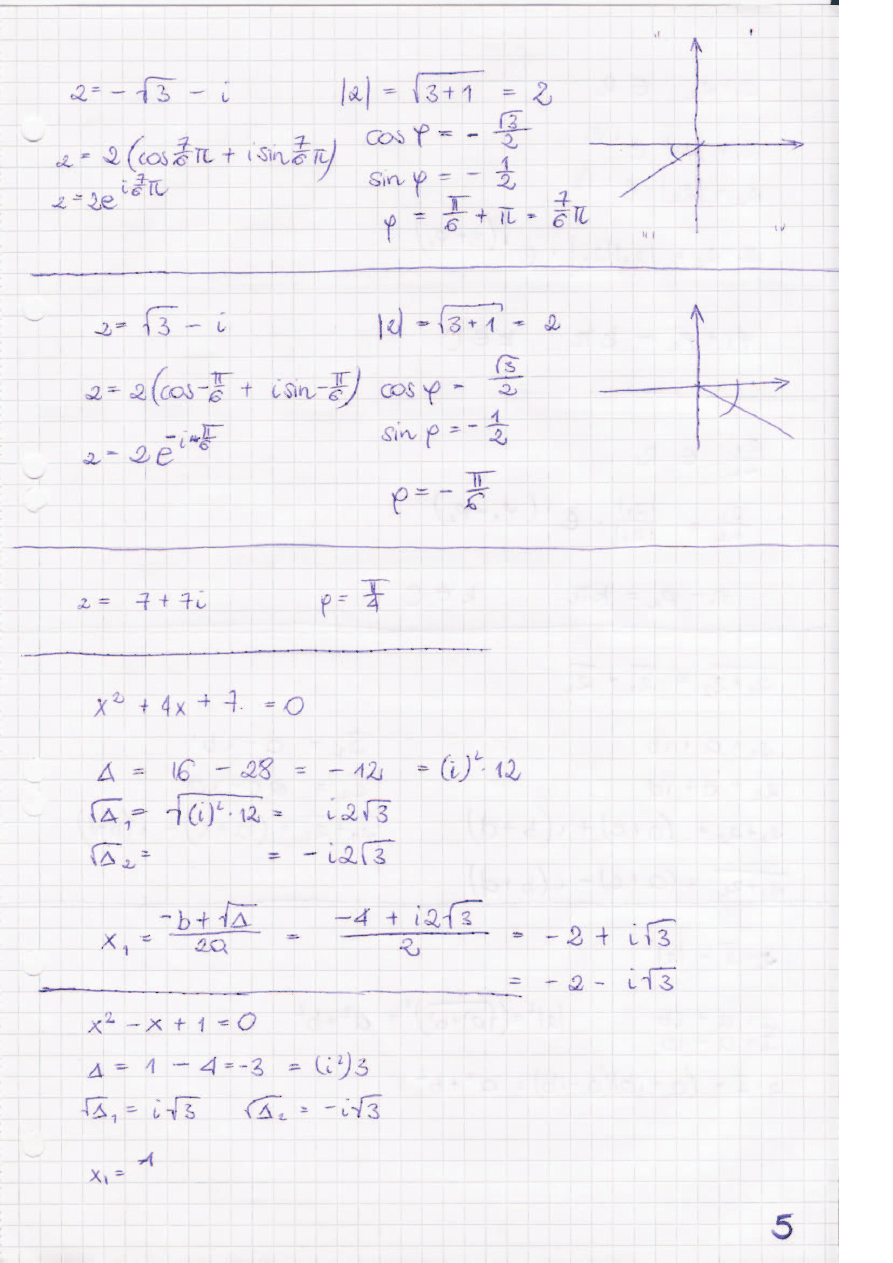 z = - √3 - i |z| = √3+1 = 2
cos φ = - √3/2
z = 2 (cos 7/6 π + i sin 7/6 π)
sin φ = - 1/2
z = 2e^{i 7/6 π}
φ = π/6 + π = 7/6 π
III IV
z = √3 - i |z| = √3+1 = 2
z = 2 (cos - π/6 + i sin - π/6) cos φ = √3/2
sin φ = - 1/2
z = 2 e^{-i π/6}
φ = - π/6
z = 7 + 7i φ = π/4
x² + 4x + 7 = 0
Δ = 16 - 28 = - 12 = (i)² · 12
√Δ₁ = √(i)² · 12 = i2√3
√Δ₂ = = - i2√3
x₁ = -b + √Δ / 2a = -4 + i2√3 / 2 = - 2 + i√3
= - 2 - i√3
x² - x + 1 = 0
Δ = 1 - 4 = -3 = (i²)3
√Δ₁ = i√3 √Δ₂ = -i√3
x₁ =
5